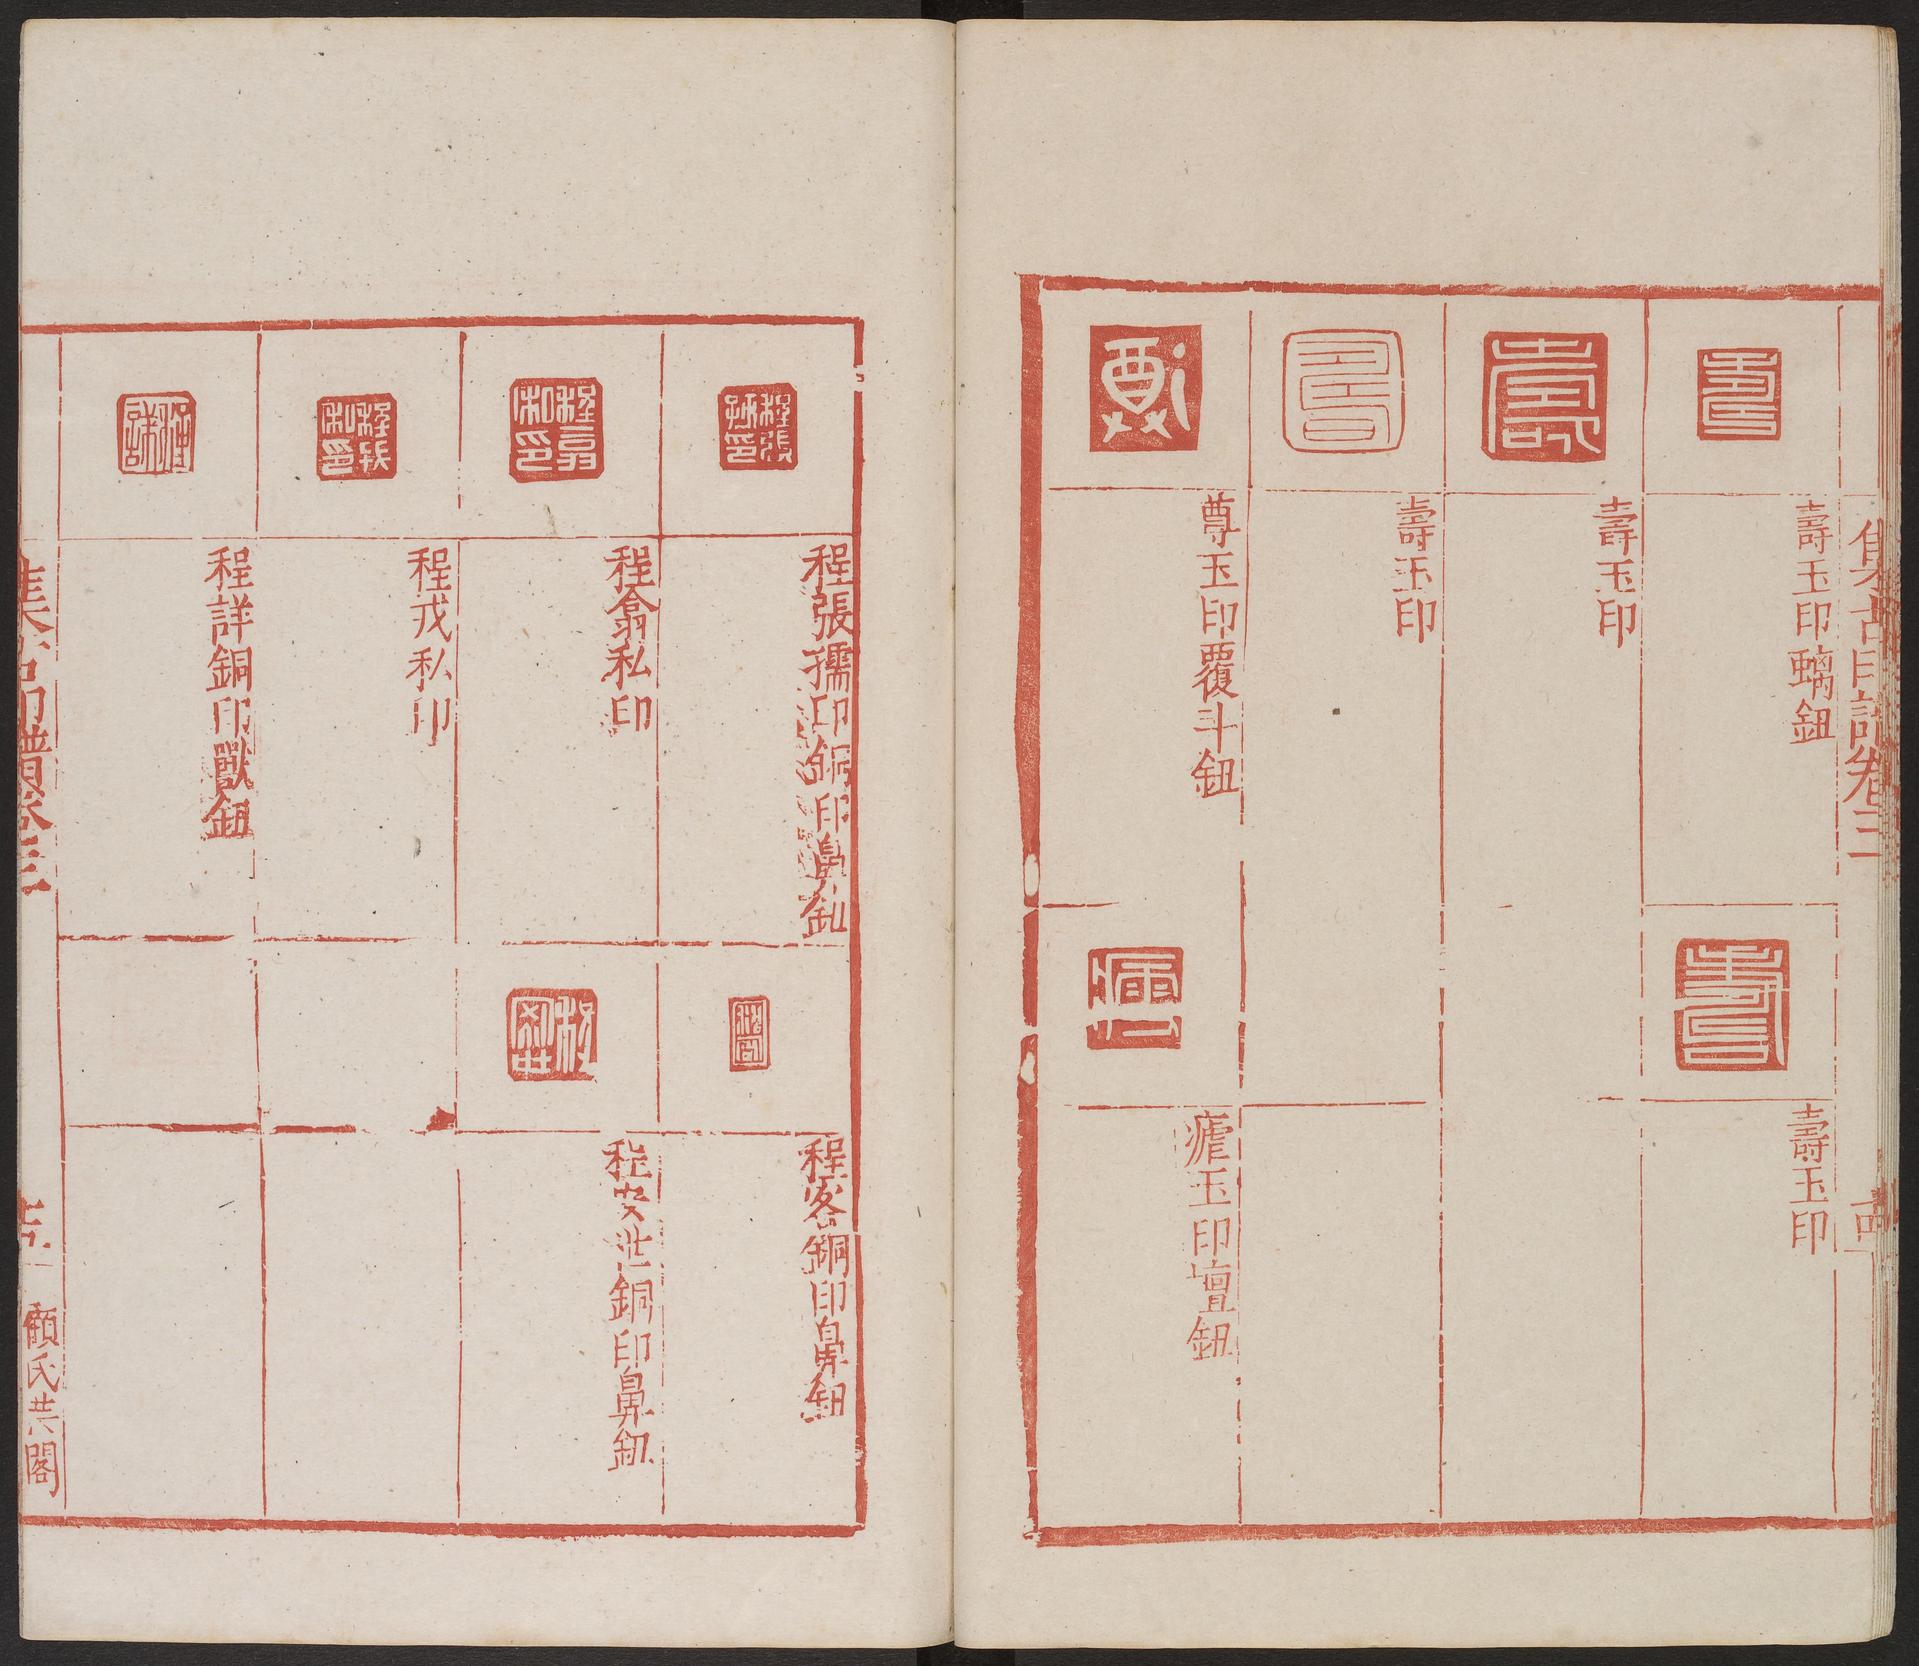 集古印譜卷三
壽玉印螭鈕
壽玉印
壽玉印
壽玉印
尊玉印覆斗鈕
瘧玉印壇鈕
程張孺印銅印鼻鈕
程客銅印鼻鈕
程翕私印
程安世銅印鼻鈕
程戎私印
程詳銅印獸鈕
集古印譜卷三
顧氏芸閣